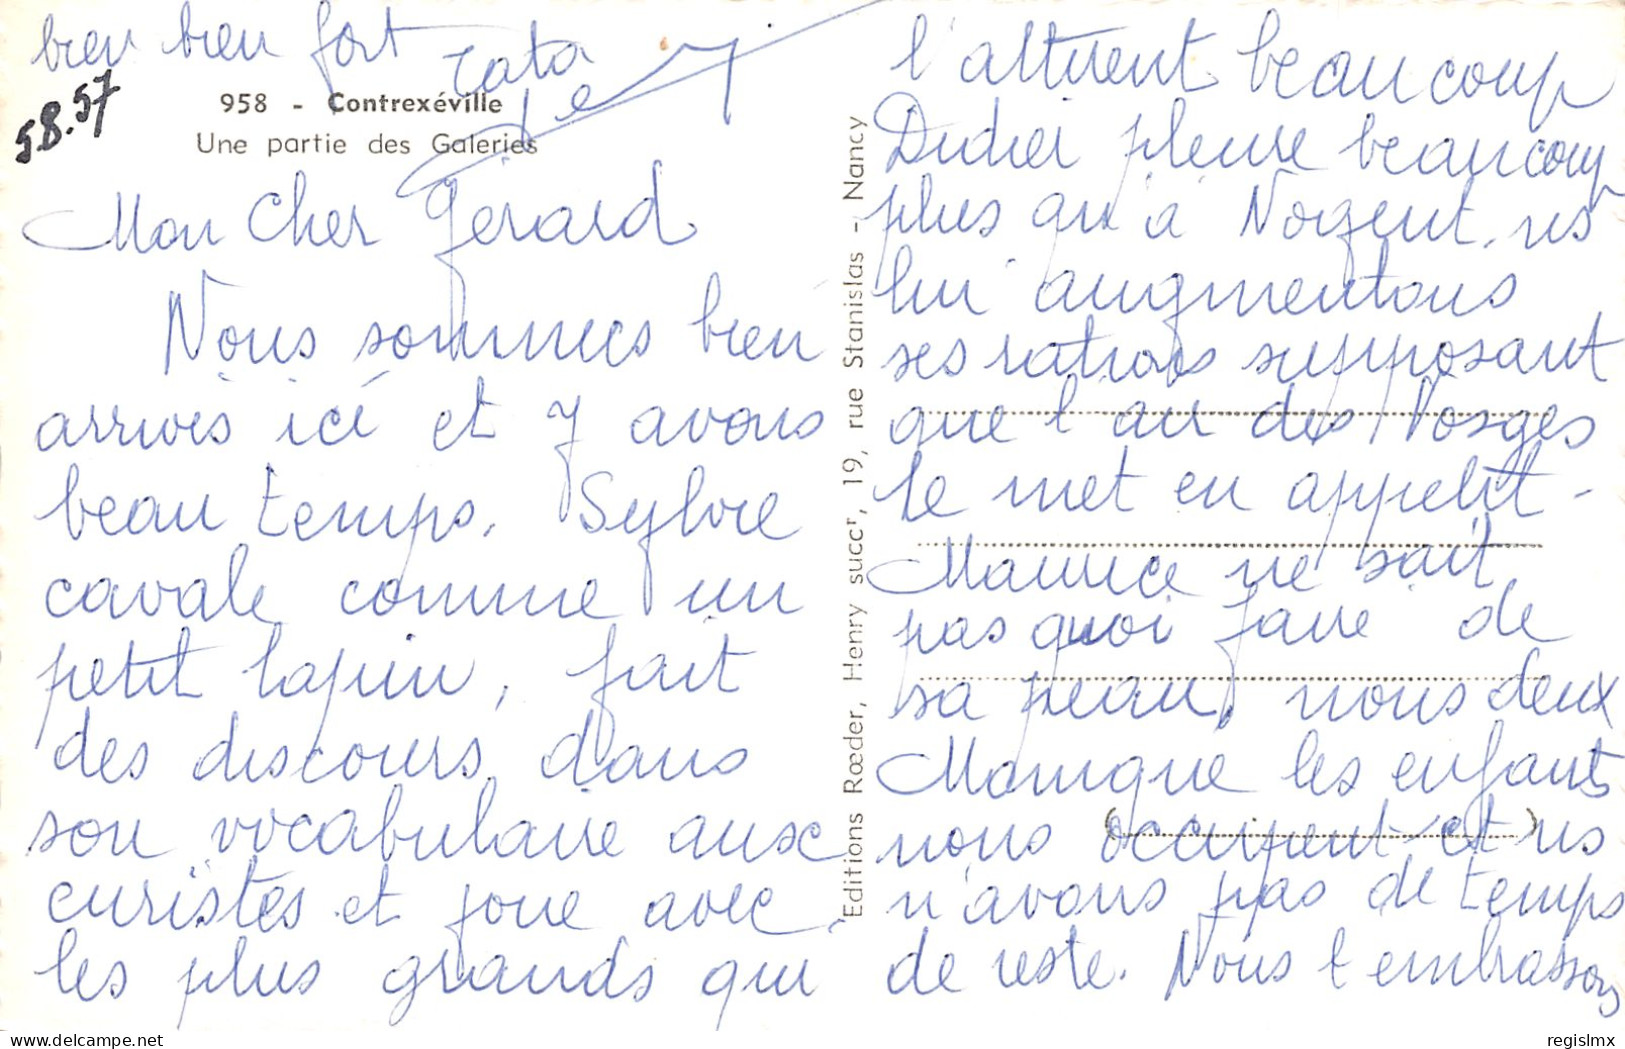 bien bien fort Tata
5.8.57
958 - Contrexéville
Une partie des Galeries
Mon Cher Gérard
Nous sommes bien
arrivés ici et y avons
beau temps. Sylvie
cavale comme un
petit lapin, fait
des discours dans
son vocabulaire aux
curistes et joue avec
les plus grands qui
Editions Rœder, Henry succr, 19, rue Stanislas - Nancy
l'attirent beaucoup
Didier pleure beaucoup
plus qu'à Nogent, ns
lui augmentons
ses rations supposant
que l'air des Vosges
le met en appétit -
Maurice ne sait
pas quoi faire de
sa peau, nous deux
Monique les enfants
nous occupent et ns
n'avons pas de temps
de reste. Nous t'embrassons
regislmx